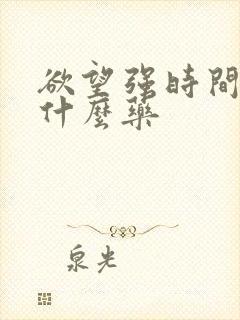 欲望强時間
什麼藥
泉光